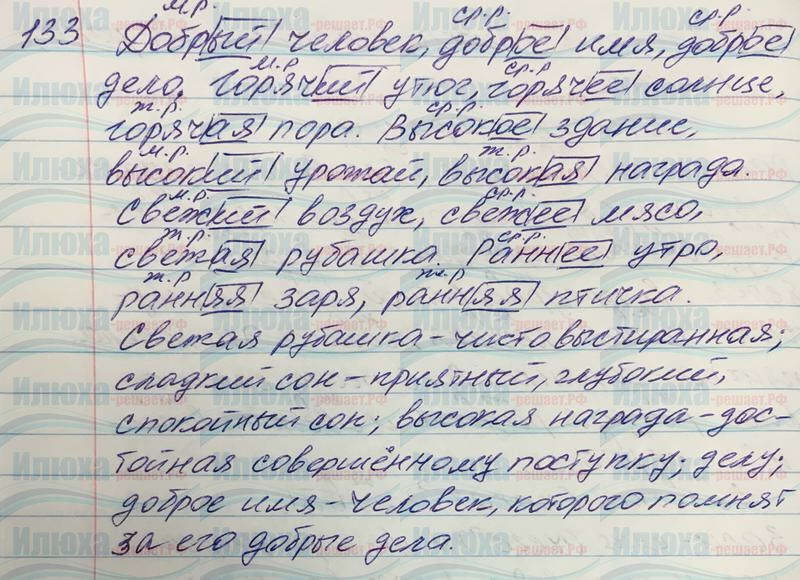 м.р. ср.р. ср.р.
133 Добрый человек, доброе имя, доброе
м.р. ср.р
дело. Горячий утюг, горячее солнце,
ж.р. ср.р.
горячая пора. Высокое здание,
м.р. ж.р.
высокий урожай, высокая награда.
м.р. ср.р.
Свежий воздух, свежее мясо,
ж.р. ср.р.
свежая рубашка. Раннее утро,
ж.р ж.р
ранняя заря, ранняя птичка.
Свежая рубашка - чисто выстиранная;
сладкий сон - приятный, глубокий,
спокойный сон; высокая награда - дос-
тойная совершённому поступку; делу;
доброе имя - человек, которого помнят
за его добрые дела.